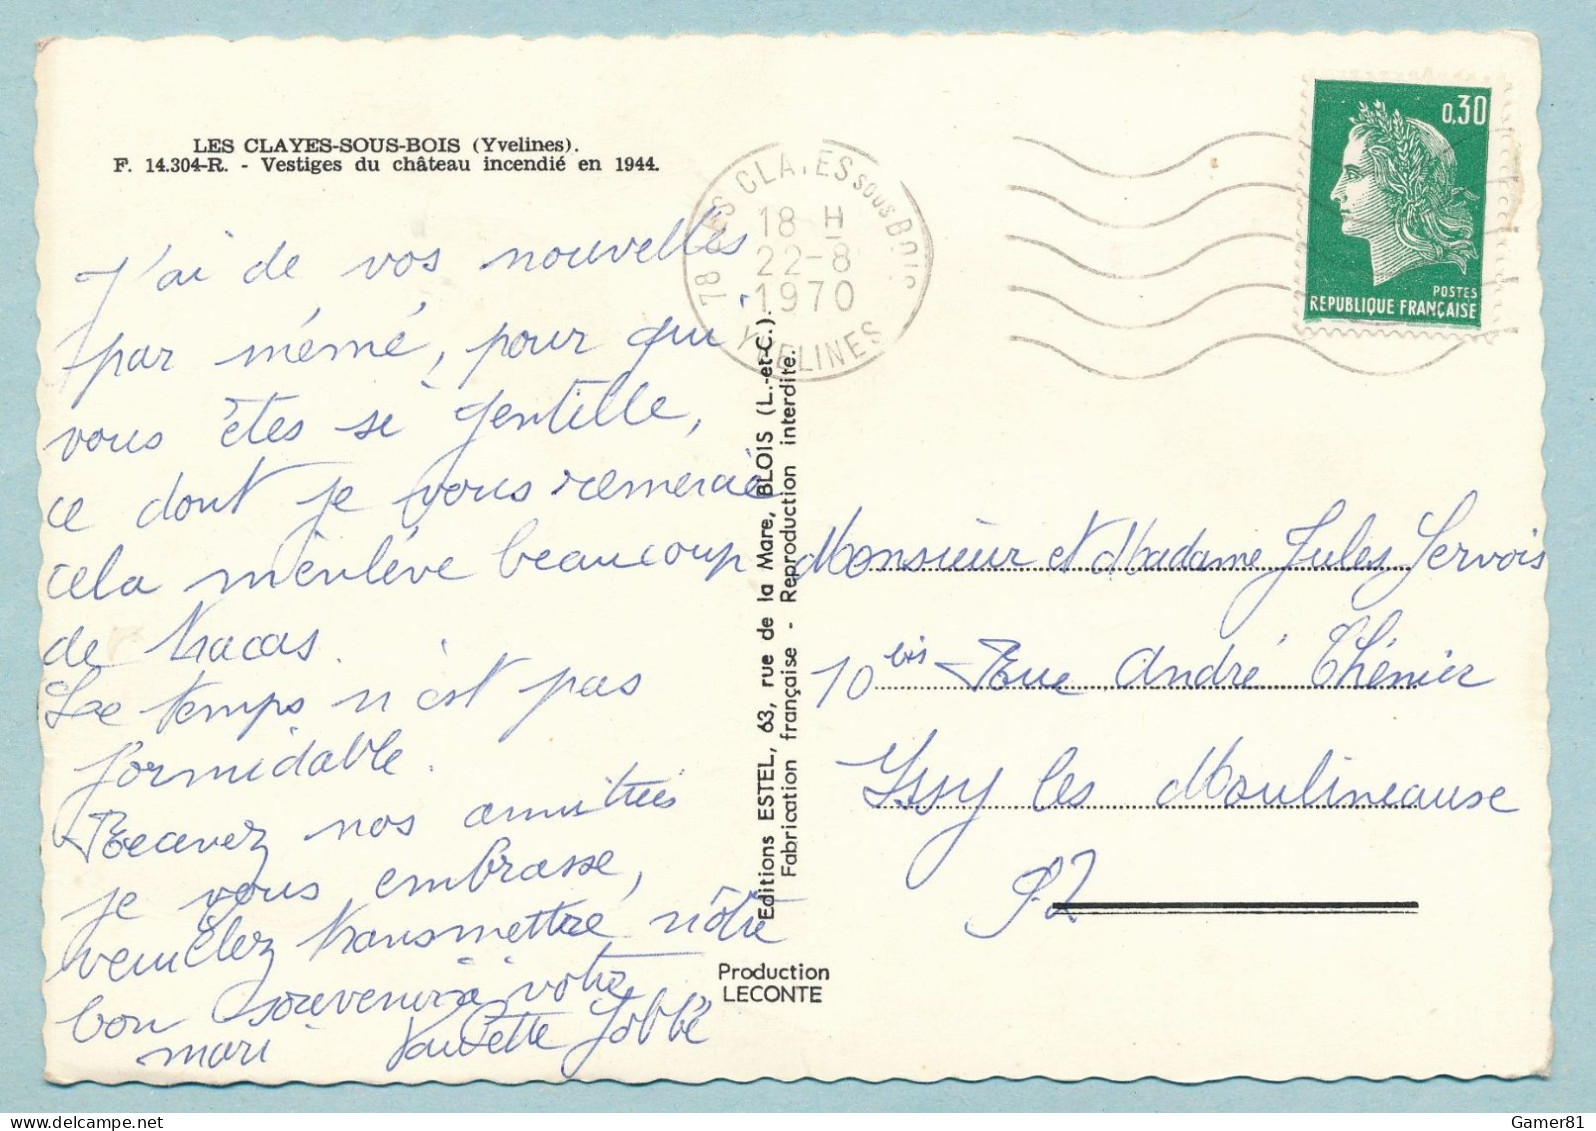 LES CLAYES-SOUS-BOIS (Yvelines).
F. 14.304-R. - Vestiges du château incendié en 1944.
J'ai de vos nouvelles
par mémé, pour qui
vous êtes si gentille,
ce dont je vous remercie
cela m'enlève beaucoup
de tracas.
Le temps n'est pas
formidable.
Recevez nos amitiés
je vous embrasse,
veuillez transmettre nôtre
bon souvenir à votre
mari Paulette Jobbé
78 LES CLAYES SOUS BOIS
18 H
22-8
1970
YVELINES
0,30
POSTES
REPUBLIQUE FRANÇAISE
Editions ESTEL, 63, rue de la Mare, BLOIS (L.-et-C.).
Fabrication française - Reproduction interdite.
Production
LECONTE
Monsieur et Madame Jules Servois
10 bis Rue André Chénier
Issy les Moulineause
92
Gamer81